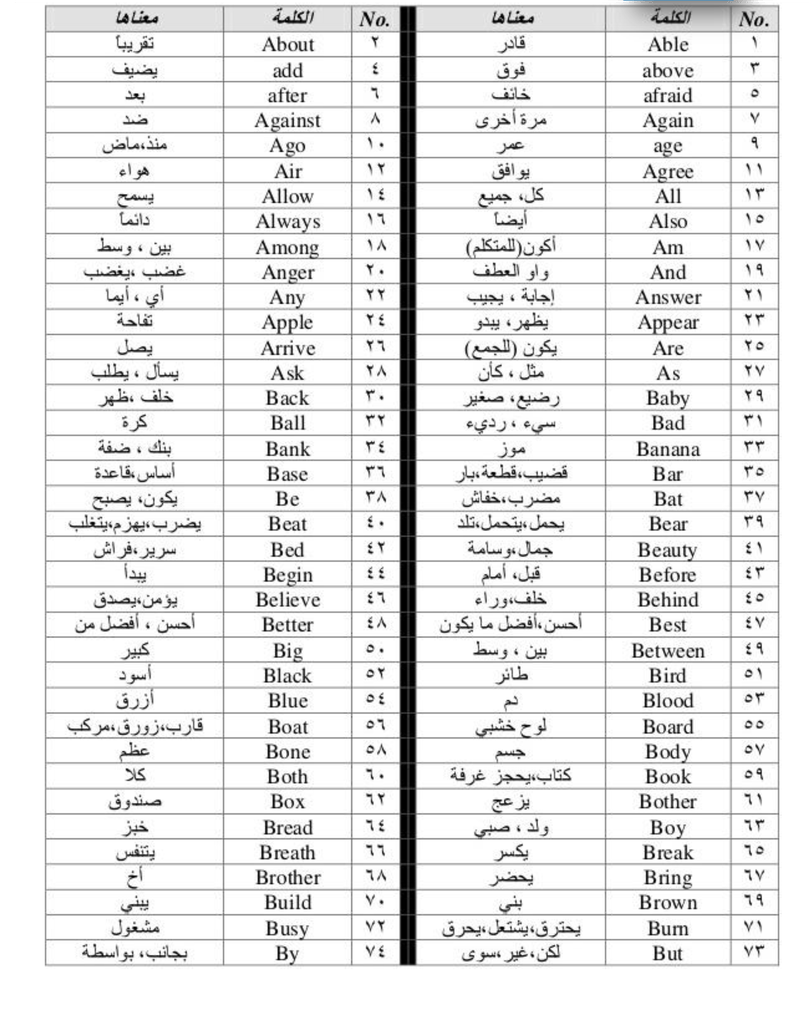 No. الكلمة معناها No. الكلمة معناها
١ Able قادر ٢ About تقريباً
٣ above فوق ٤ add يضيف
٥ afraid خائف ٦ after بعد
٧ Again مرة أخرى ٨ Against ضد
٩ age عمر ١٠ Ago منذ،ماض
١١ Agree يوافق ١٢ Air هواء
١٣ All كل، جميع ١٤ Allow يسمح
١٥ Also أيضاً ١٦ Always دائماً
١٧ Am أكون(للمتكلم) ١٨ Among بين ، وسط
١٩ And واو العطف ٢٠ Anger غضب ،يغضب
٢١ Answer إجابة ، يجيب ٢٢ Any أي ، أيما
٢٣ Appear يظهر، يبدو ٢٤ Apple تفاحة
٢٥ Are يكون (للجمع) ٢٦ Arrive يصل
٢٧ As مثل ، كأن ٢٨ Ask يسأل ، يطلب
٢٩ Baby رضيع، صغير ٣٠ Back خلف ،ظهر
٣١ Bad سيء ، رديء ٣٢ Ball كرة
٣٣ Banana موز ٣٤ Bank بنك ، ضفة
٣٥ Bar قضيب،قطعة،بار ٣٦ Base أساس،قاعدة
٣٧ Bat مضرب،خفاش ٣٨ Be يكون، يصبح
٣٩ Bear يحمل،يتحمل،تلد ٤٠ Beat يضرب،يهزم،يتغلب
٤١ Beauty جمال،وسامة ٤٢ Bed سرير،فراش
٤٣ Before قبل، أمام ٤٤ Begin يبدأ
٤٥ Behind خلف،وراء ٤٦ Believe يؤمن،يصدق
٤٧ Best أحسن،أفضل ما يكون ٤٨ Better أحسن ، أفضل من
٤٩ Between بين ، وسط ٥٠ Big كبير
٥١ Bird طائر ٥٢ Black أسود
٥٣ Blood دم ٥٤ Blue أزرق
٥٥ Board لوح خشبي ٥٦ Boat قارب،زورق،مركب
٥٧ Body جسم ٥٨ Bone عظم
٥٩ Book كتاب،يحجز غرفة ٦٠ Both كلا
٦١ Bother يزعج ٦٢ Box صندوق
٦٣ Boy ولد ، صبي ٦٤ Bread خبز
٦٥ Break يكسر ٦٦ Breath يتنفس
٦٧ Bring يحضر ٦٨ Brother أخ
٦٩ Brown بني ٧٠ Build يبني
٧١ Burn يحترق،يشتعل،يحرق ٧٢ Busy مشغول
٧٣ But لكن،غير ،سوى ٧٤ By بجانب، بواسطة